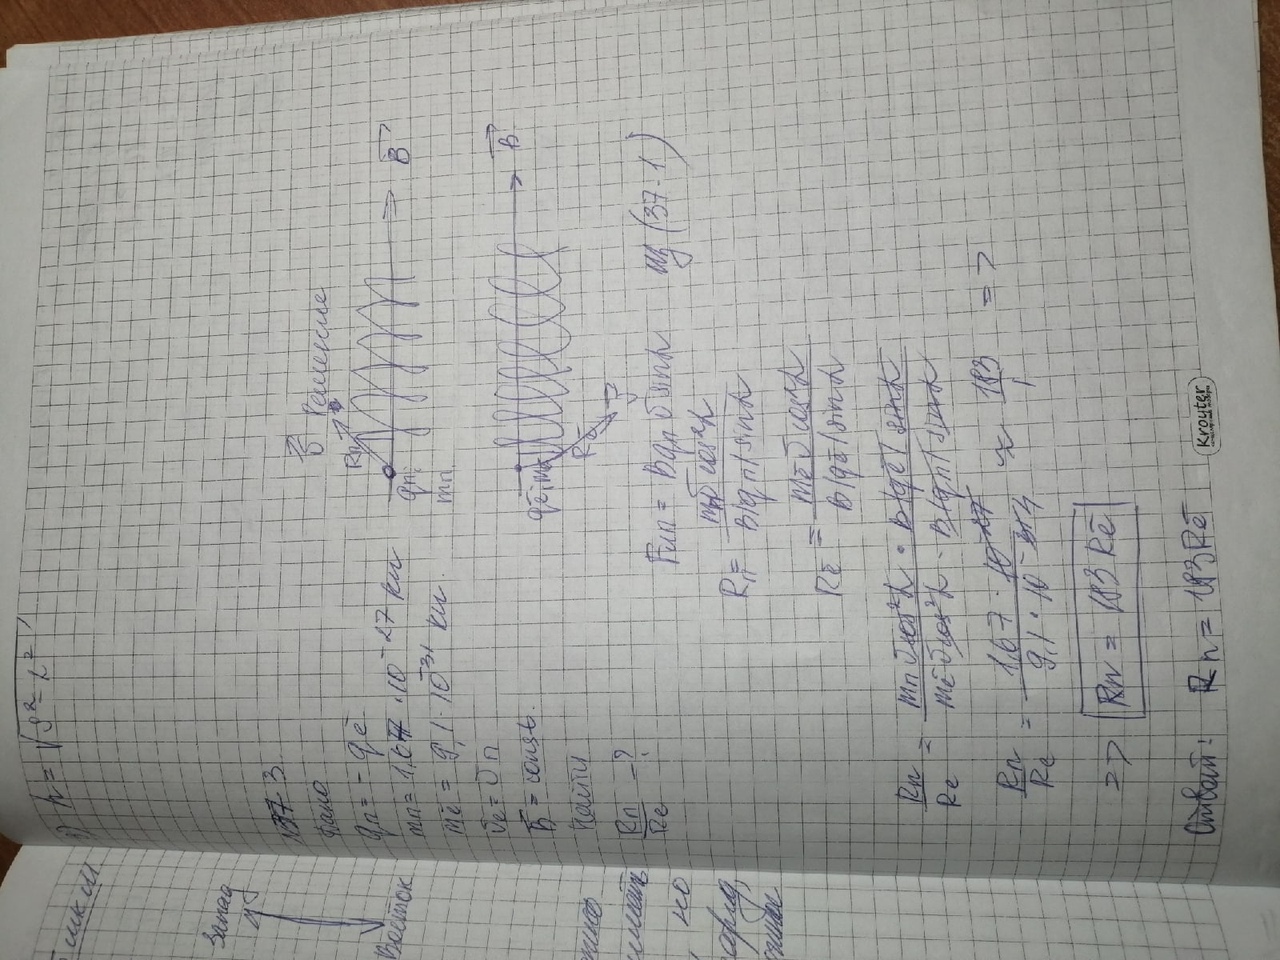 мкм
Запад
Восток
но
3) h = √S² - L²
№37-3.
Дано
qп = - qē
mп = 1,67 · 10⁻²⁷ кг
mē = 9,1 · 10⁻³¹ кг.
υē = υп
B = const.
Найти
Rп/Rē - ?
υ⃗ Решение
Rп
B⃗
qп,
mп.
B⃗
qē, mē
Rē
υ⃗
Fлп = Bqп υ sinα из (37-1)
Rп = mпυ cos²α / B|qп| sinα
Rē = mē υ cos²α / B|qē| sinα
Rп/Rē = mп υ cos²α · B|qē| sinα / mē υ cos²α · B|qп| sinα
Rп/Rē = 1,67 · 10⁻²⁷ / 9,1 · 10⁻³¹ 4 ≈ 183/1 =>
=> Rп = 183 Rē
Ответ: Rп = 183 Rē
Kroyter